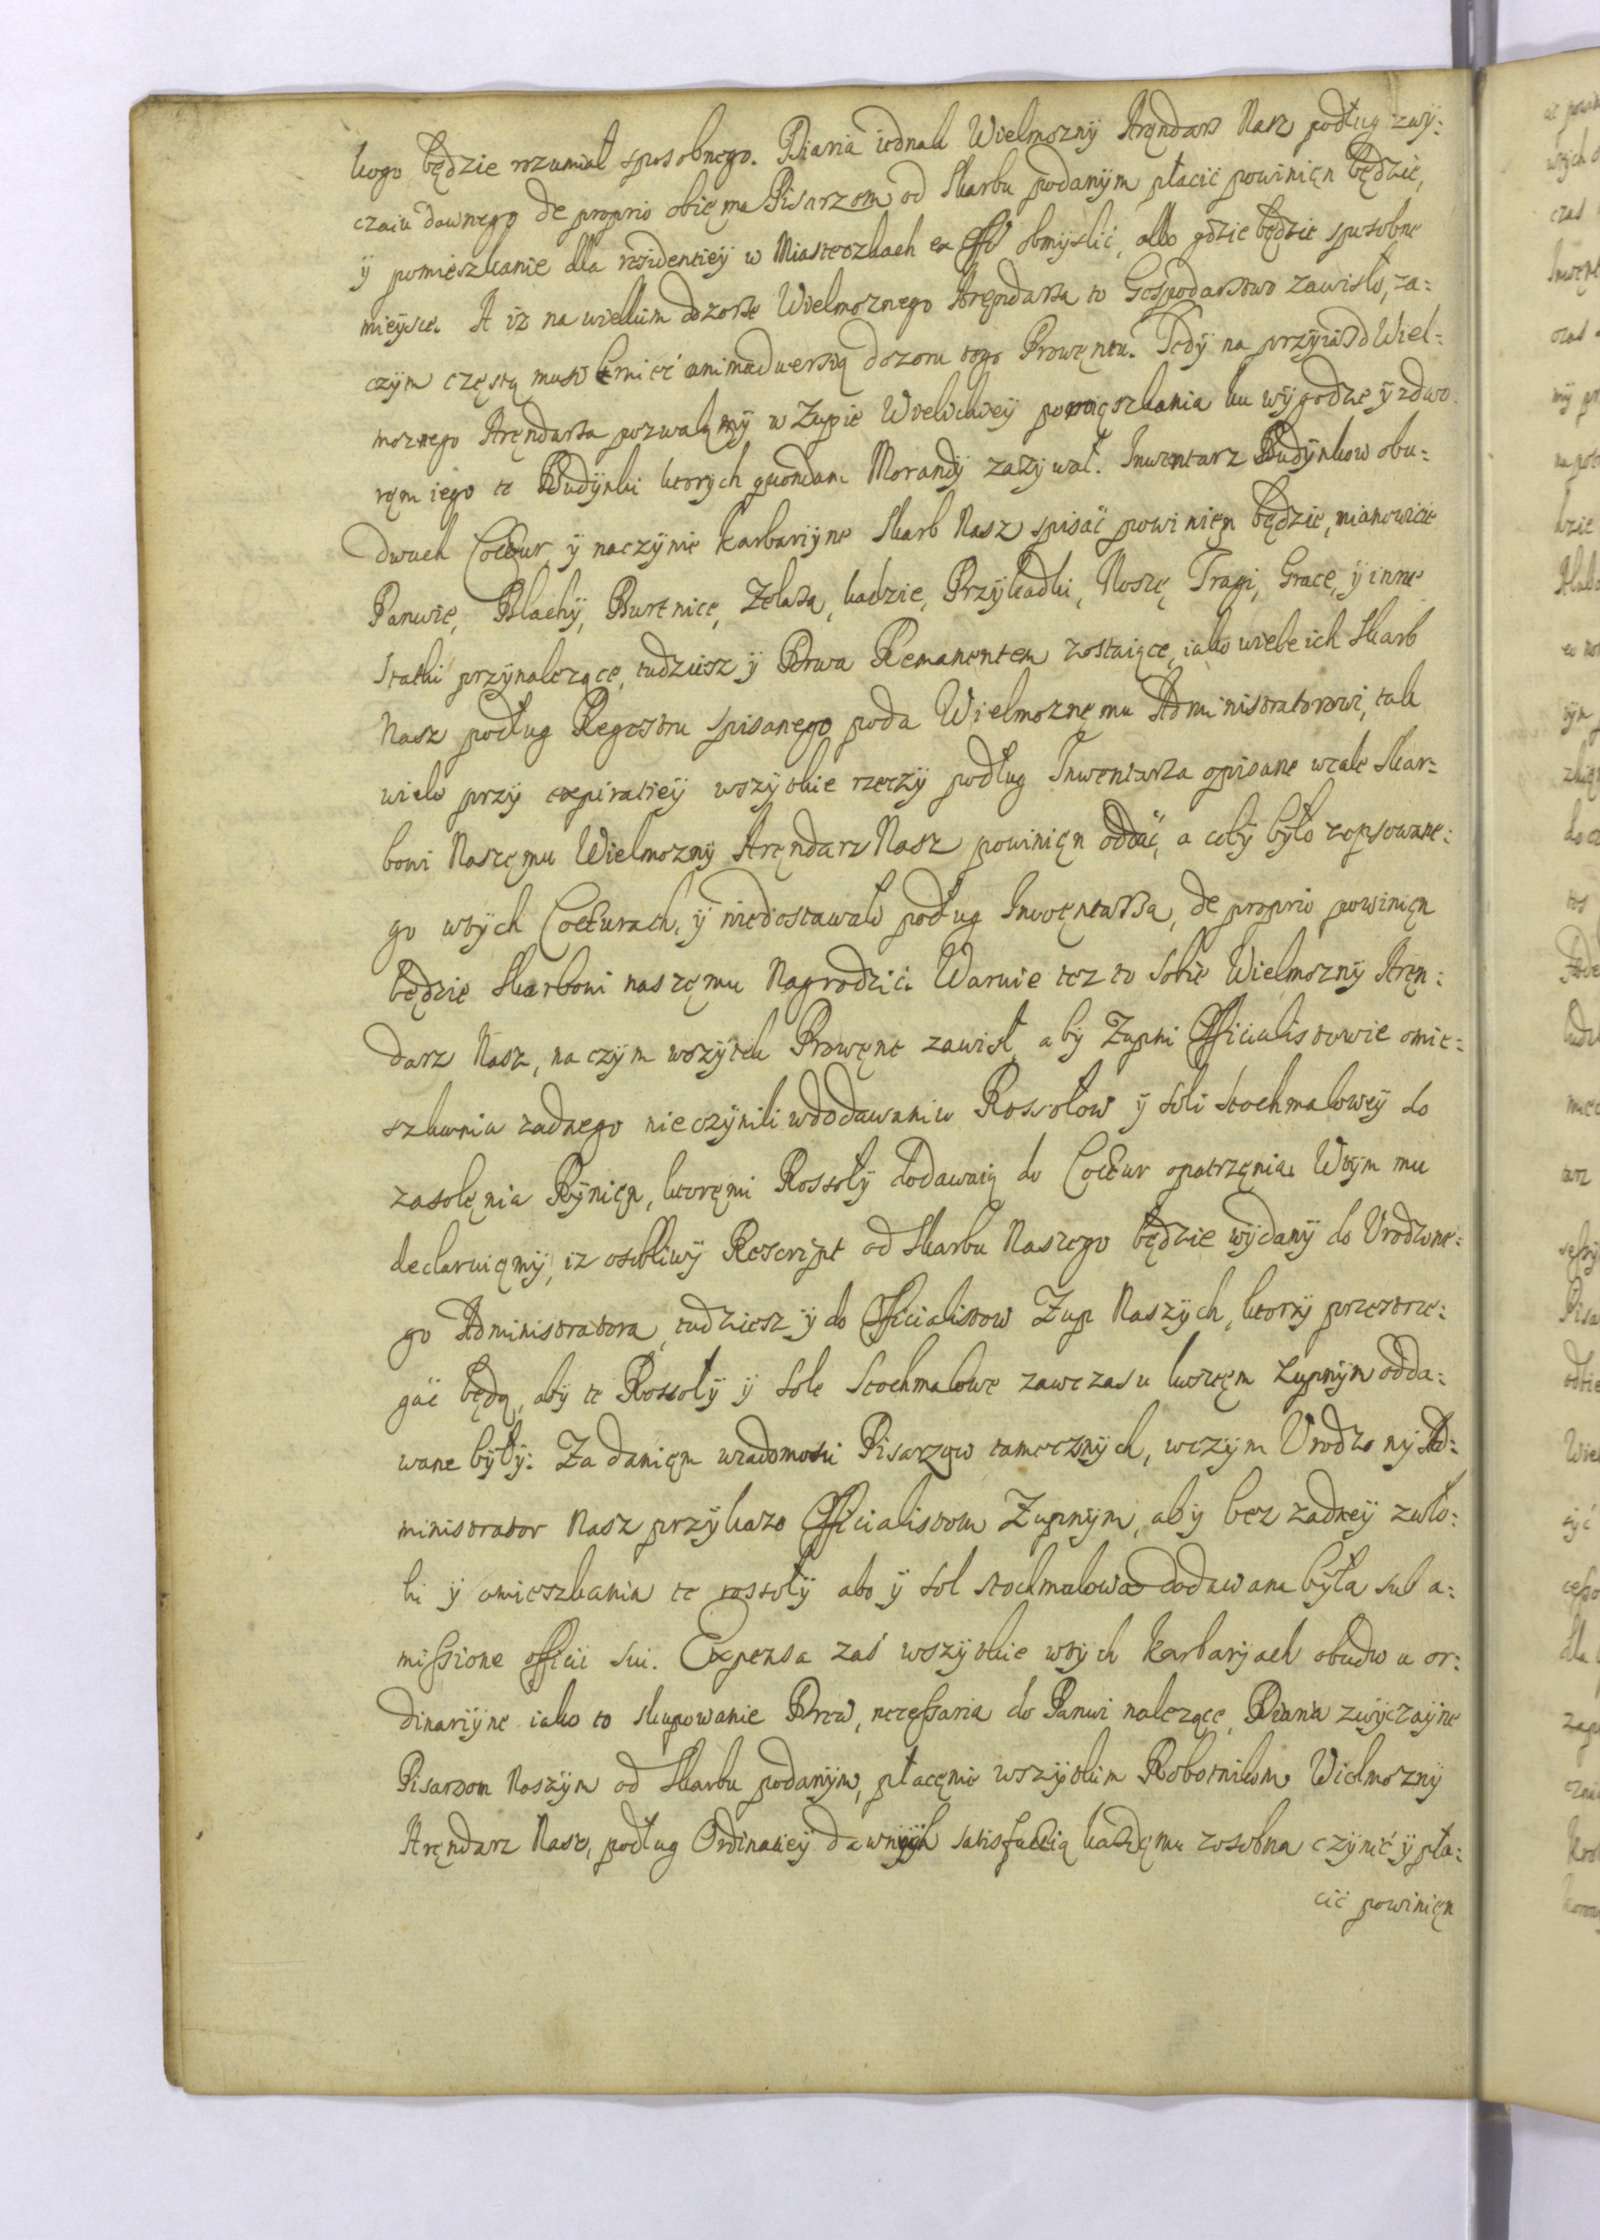 kogo będzie rozumiał sposobnego. Diaria iednak Wielmozny Aręndarz Nasz podług zwy:
czaiu dawnego de proprio obięma Pisarzom od Skarbu podanym płacić powinięn będzie,
y pomieszkanie dla residentiey w Miasteczkach ex offo obmyslić, albo gdzie będzie sposobne
mieysce. A iz na wielkim dozorze Wielmoznego Aręndarza to Gospodarstwo zawisło, za:
czym częstą musi mieć animadwersią dozoru tego Prowęntu. Tedy na przyiazd Wiel:
moznego Aręndarza pozwalamy w Zupie Wielickiey pomięszkania ku wygodzie y zdwo:
ręm iego te Budynki ktorych quondam Morandy zazywał. Inwentarz Budynkow obu:
dwuch Coctur y naczynie karbaryine Skarb Nasz spisać powinięn będzie, mianowicie
Panwie, Blachy, Burtnice, Zelaza, kadzie, Przykadki, Noszę, Tragi, Grace, y inne
statki przynalezące, tudziesz y Drwa Remanentem zostaiące, iako wiele ich Skarb
Nasz podług Regestru spisanego poda Wielmoznęmu Administratorowi, tak
wiele przy expiratiey wszytkie rzeczy podług Inwentarza opisane wcale Skar:
bowi Naszęmu Wielmozny Aręndarz Nasz powinięn oddać, a coby było zepsowane:
go wtych Cocturach, y niedostawało podług Inwęntarza, de proprio powinięn
będzie Skarbowi naszęmu Nagrodzić. Waruie tez to sobie Wielmozny Aręn:
darz Nasz, na czym wszytek Prowęnt zawisł, aby Zupni Officialistowie omie:
szkania zadnego nie czynili wdodawaniu Rossołow y soli stochmalowey do
zasolęnia Rynięn, ktoręmi Rossoły dodawaią do Coctur opatrzęnia. Wtym mu
declaruięmy, iz osobliwy Rescript od Skarbu Naszego będzie wydany do Urodzone:
go Administratora, tudziesz y do Officialistow Zup Naszych, ktorzy przestrze:
gać będą, aby te Rossoły y sole stochmalowe zawczasu kosztęm zupnym odda:
wane były: Za danięm wiadomosci Pisarzow tamecznych, wczym Urodzony Ad:
ministrator Nasz przykaze Officialistom Zupnym, aby bez zadney zwło:
ki y omieszkania te rossoły abo y sol stochmalowa dodawana była sub a:
missione officii sui. Expensa zas wszytkie wtych karbaryach obudwu or:
dinaryine iako to skupowanie Drew, necessaria do Panwi nalezące, Diaria zwyczayne
Pisarzom Naszym od Skarbu podanym, płacęnie wszytkim Robotnikom Wielmozny
Aręndarz Nasz, podług Ordinatiey dawnych satisfactią kazdęmu zosobna czynić y pła:
cić powinięn